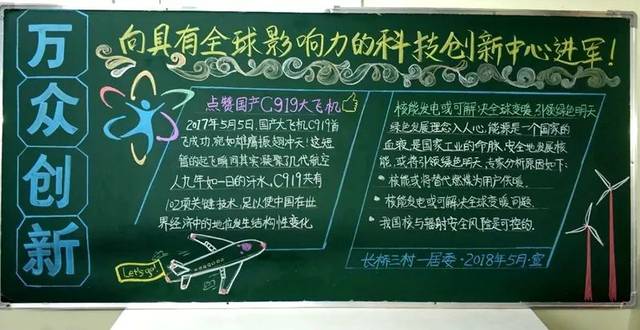 万众创新
向具有全球影响力的科技创新中心进军!
点赞国产C919大飞机
2017年5月5日,国产大飞机C919首
飞成功,宛如雄鹰振翅冲天!这短
暂的起飞瞬间其实凝聚了几代航空
人九年如一日的汗水。C919共有
102项关键技术,足以使中国在世
界经济中的地位发生结构性变化
Let's go!
核能发电或可解决全球变暖,引领绿色明天
绿色发展理念入人心,能源是一个国家的
血液,是国家工业的命脉,安全地发展核
能,或将引领绿色明天,专家分析原因如下:
· 核能或将替代燃煤为用户供暖.
· 核能发电或可解决全球变暖问题.
· 我国核与辐射安全风险是可控的.
长桥三村一居委·2018年5月·宣